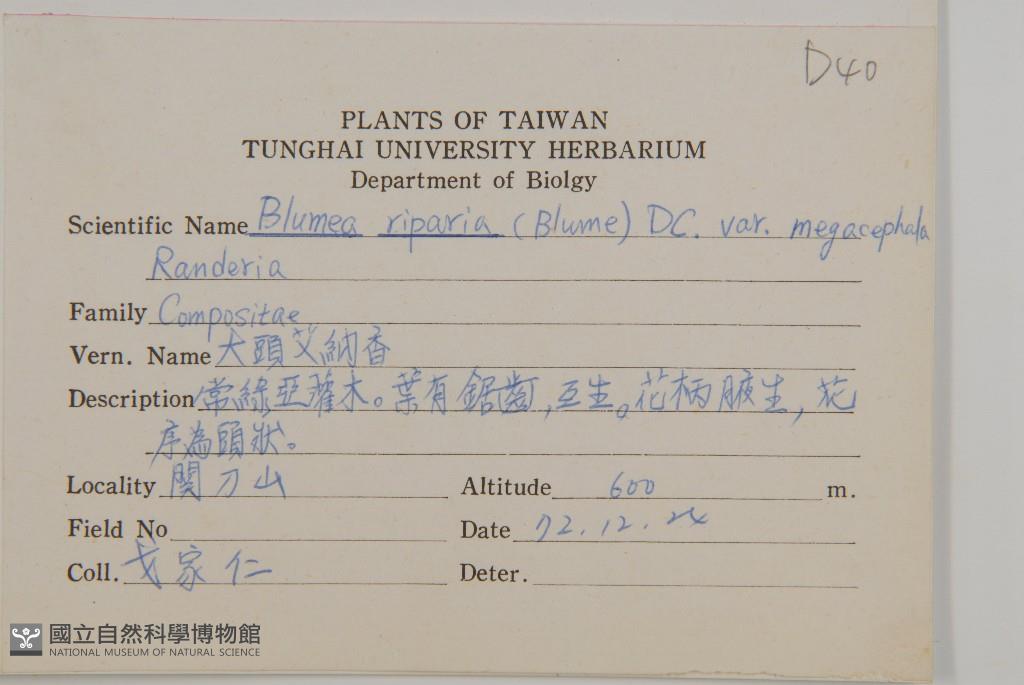 D40
PLANTS OF TAIWAN
TUNGHAI UNIVERSITY HERBARIUM
Department of Biolgy
Scientific Name Blumea riparia (Blume) DC. var. megacephala
Randeria
Family Compositae
Vern. Name 大頭艾納香
Description 常綠亞灌木。葉有鋸齒,互生。花柄腋生,花
序為頭狀。
Locality 関刀山 Altitude 600 m.
Field No Date 72.12.24
Coll. 戈家仁 Deter.
國立自然科學博物館
NATIONAL MUSEUM OF NATURAL SCIENCE